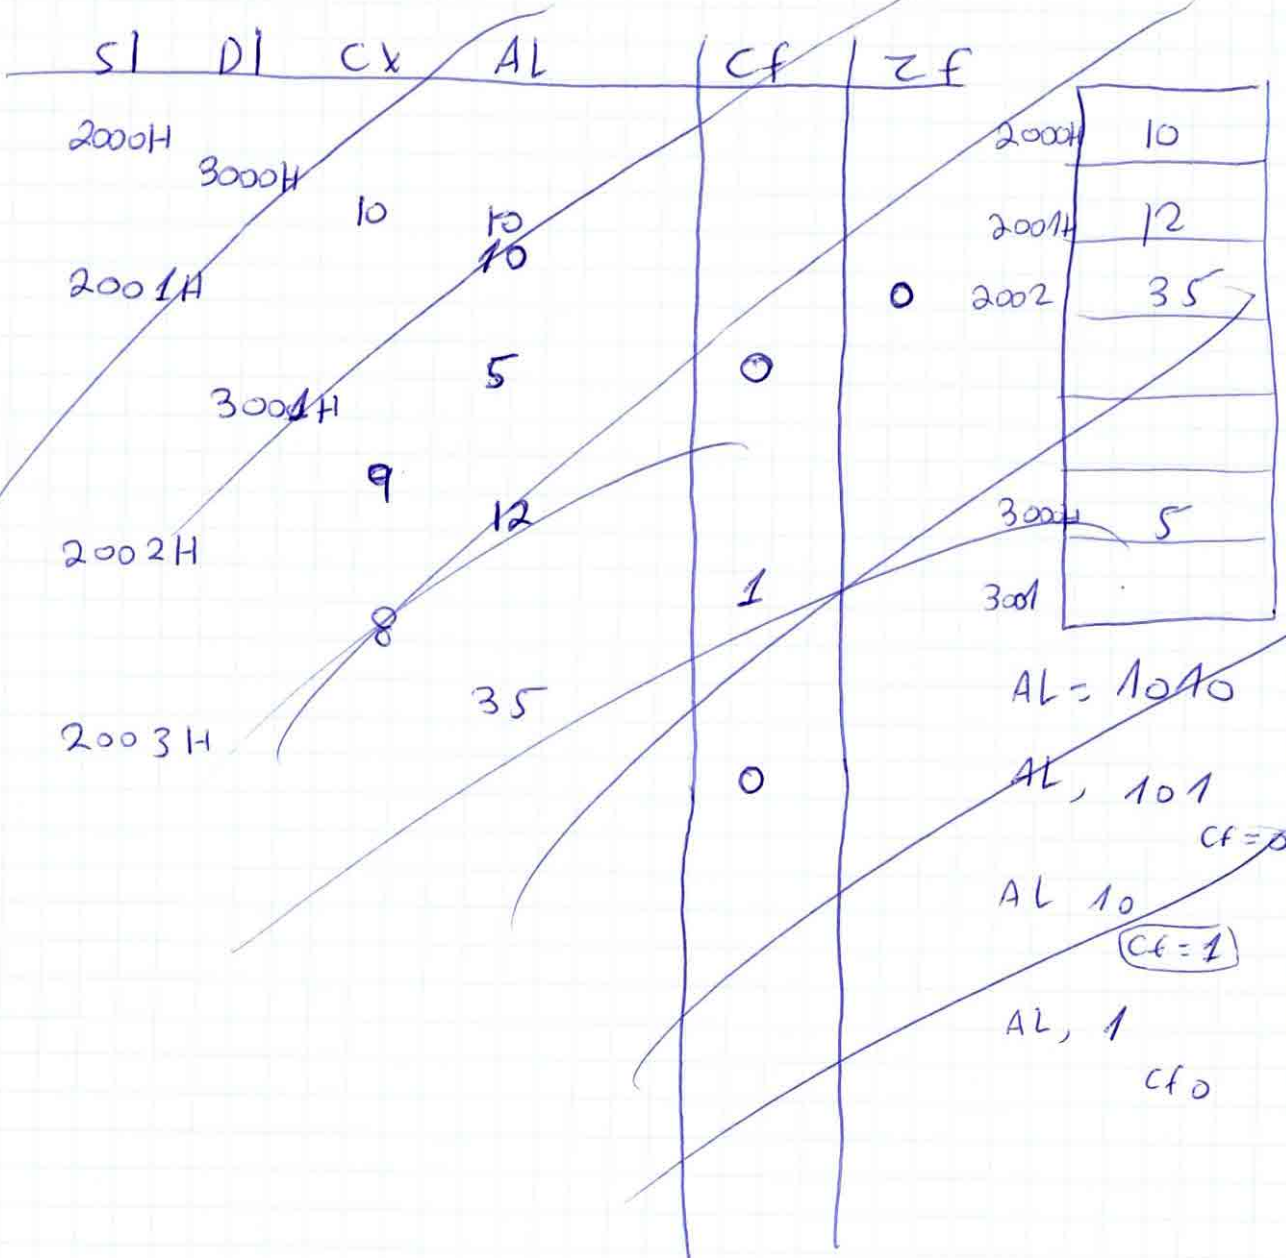 SI DI CX AL Cf Zf
2000H
3000H
10 10
10
2001H
0
5 0
3001H
9
12
2002H
1
8
35
2003H
0
2000H 10
2001H 12
2002 35
3000H 5
3001
AL = 1010
AL, 101
Cf = 0
AL 10
Cf = 1
AL, 1
Cf 0